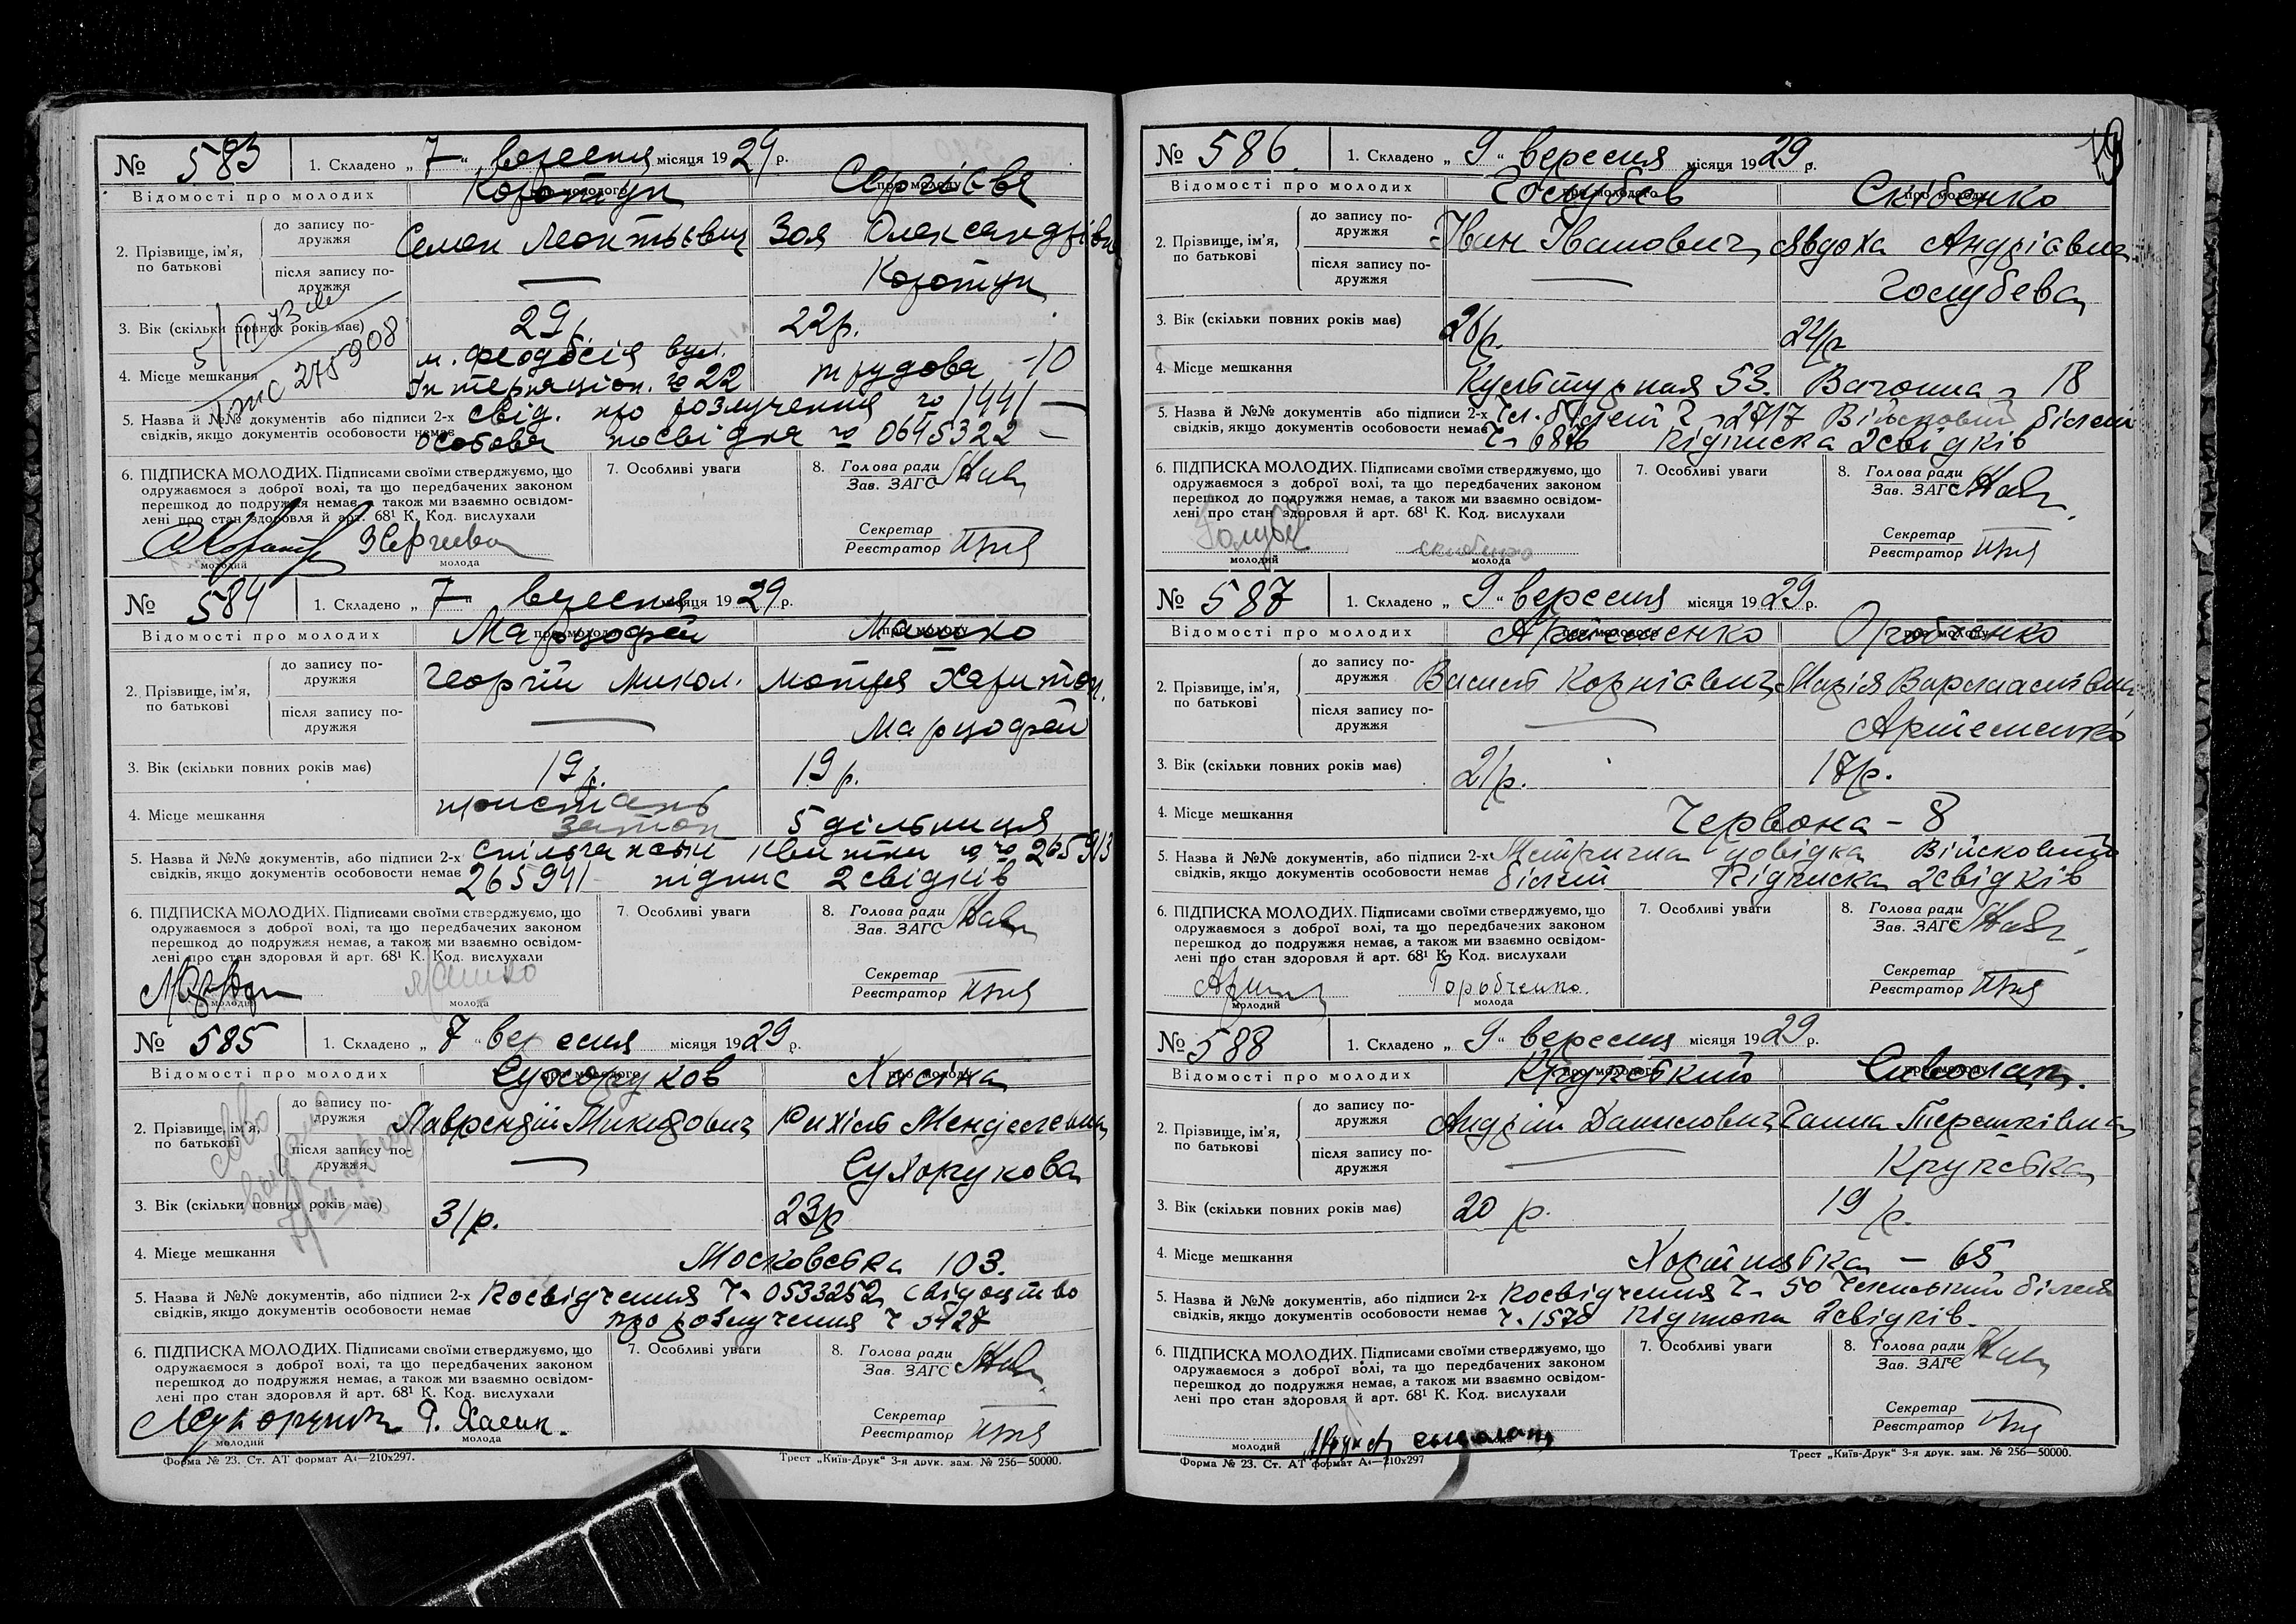 № 583 1. Складено „ 7 “ вересня місяця 1929 р.
Відомості про молодих про молодого про молоду
Коротун Сергієва
2. Прізвище, ім’я, по батькові
до запису по-
дружжя
Семен Леонтьєвич Зоя Олександрівна
після запису по-
дружжя
— Коротун
3. Вік (скільки повних років має) 29 р. 22 р.
4. Місце мешкання
м. Феодосія вул.
Інтернаціон. № 22 трудова - 10
275908
5. Назва й №№ документів або підписи 2-х
свідків, якщо документів особовости немає
свід. про розлучення № 1441 —
особова посвідка № 0645322 —
6. ПІДПИСКА МОЛОДИХ. Підписами своїми стверджуємо, що
одружаємося з доброї волі, та що передбачених законом
перешкод до подружжя немає, а також ми взаємно освідом-
лені про стан здоровля й арт. 68¹ К. Код. вислухали
молодий молода
7. Особливі уваги
8. Голова ради
Зав. ЗАГС
Секретар
Реєстратор
№ 584 1. Складено „ 7 “ вересня місяця 1929 р.
Відомості про молодих про молодого про молоду
Марцофей Машко
2. Прізвище, ім’я,
по батькові
до запису по-
дружжя
Георгій Микол. Мотря Харитон.
після запису по-
дружжя
— Марцофей
3. Вік (скільки повних років має) 19 р. 19 р.
4. Місце мешкання
пристань
затон 5 дільниця
5. Назва й №№ документів, або підписи 2-х
свідків, якщо документів особовости немає
265913
265941 підпис 2 свідків
6. ПІДПИСКА МОЛОДИХ. Підписами своїми стверджуємо, що
одружаємося з доброї волі, та що передбачених законом
перешкод до подружжя немає, а також ми взаємно освідом-
лені про стан здоровля й арт. 68¹ К. Код. вислухали
молодий молода
7. Особливі уваги
8. Голова ради
Зав. ЗАГС
Секретар
Реєстратор
№ 585 1. Складено „ 7 “ вересня місяця 1929 р.
Відомості про молодих про молодого про молоду
Сухоруков Хасіна
2. Прізвище, ім’я,
по батькові
до запису по-
дружжя
Лаврендій Микитович Рихіль Менделевна
після запису по-
дружжя
— Сухорукова
3. Вік (скільки повних років має) 31 р. 23 р
4. Місце мешкання Московська 103.
5. Назва й №№ документів, або підписи 2-х
свідків, якщо документів особовости немає
Посвідчення Ч. 0533252 свідоцтво
про розлучення Ч 5427
6. ПІДПИСКА МОЛОДИХ. Підписами своїми стверджуємо, що
одружаємося з доброї волі, та що передбачених законом
перешкод до подружжя немає, а також ми взаємно освідом-
лені про стан здоровля й арт. 68¹ К. Код. вислухали
Р. Хасин.
молодий молода
7. Особливі уваги
8. Голова ради
Зав. ЗАГС
Секретар
Реєстратор
Форма № 23. Ст. АТ формат А₄—210х297. Трест „Київ-Друк“ 3-я друк. зам. № 256—50000.
№ 586 1. Складено „ 9 “ вересня місяця 1929 р.
Відомості про молодих про молодого про молоду
Голубєв Скібенко
2. Прізвище, ім’я,
по батькові
до запису по-
дружжя
Іван Іванович Явдоха Андріавна
після запису по-
дружжя
— Голубева
3. Вік (скільки повних років має) 26 р. 24 р
4. Місце мешкання Культурная 53. 18
5. Назва й №№ документів або підписи 2-х
свідків, якщо документів особовости немає
Чл. білет Ч 2717 Військовий білет
Ч. 6876 Підписка 2 свідків
6. ПІДПИСКА МОЛОДИХ. Підписами своїми стверджуємо, що
одружаємося з доброї волі, та що передбачених законом
перешкод до подружжя немає, а також ми взаємно освідом-
лені про стан здоровля й арт. 68¹ К. Код. вислухали
молодий молода
7. Особливі уваги
8. Голова ради
Зав. ЗАГС
Секретар
Реєстратор
№ 587 1. Складено „ 9 “ вересня місяця 1929 р.
Відомості про молодих про молодого про молоду
Артеменко
2. Прізвище, ім’я,
по батькові
до запису по-
дружжя
Василь Корнієвич Марія Варламаівна
після запису по-
дружжя
— Артеменко
3. Вік (скільки повних років має) 21 р. 17 р.
4. Місце мешкання Червона - 8
5. Назва й №№ документів, або підписи 2-х
свідків, якщо документів особовости немає
Метрична довідка Військовий
білет Підписка 2 свідків
6. ПІДПИСКА МОЛОДИХ. Підписами своїми стверджуємо, що
одружаємося з доброї волі, та що передбачених законом
перешкод до подружжя немає, а також ми взаємно освідом-
лені про стан здоровля й арт. 68¹ К. Код. вислухали
Горобченко.
молодий молода
7. Особливі уваги
8. Голова ради
Зав. ЗАГС
Секретар
Реєстратор
№ 588 1. Складено „ 9 “ вересня місяця 1929 р.
Відомості про молодих про молодого про молоду
Крупський Сиволап.
2. Прізвище, ім’я,
по батькові
до запису по-
дружжя
Андрій Данилович Ганна Терешківна
після запису по-
дружжя
— Крупська
3. Вік (скільки повних років має) 20 р. 19 р.
4. Місце мешкання Хортицька - 65
5. Назва й №№ документів, або підписи 2-х
свідків, якщо документів особовости немає
Посвідчення Ч. 50 Членський білет
Ч. 1578 Підписка 2 свідків.
6. ПІДПИСКА МОЛОДИХ. Підписами своїми стверджуємо, що
одружаємося з доброї волі, та що передбачених законом
перешкод до подружжя немає, а також ми взаємно освідом-
лені про стан здоровля й арт. 68¹ К. Код. вислухали
молодий
7. Особливі уваги
8. Голова ради
Зав. ЗАГС
Секретар
Реєстратор
Форма № 23. Ст. АТ формат А₄—210х297 Трест „Київ-Друк“ 3-я друк. зам. № 256—50000.